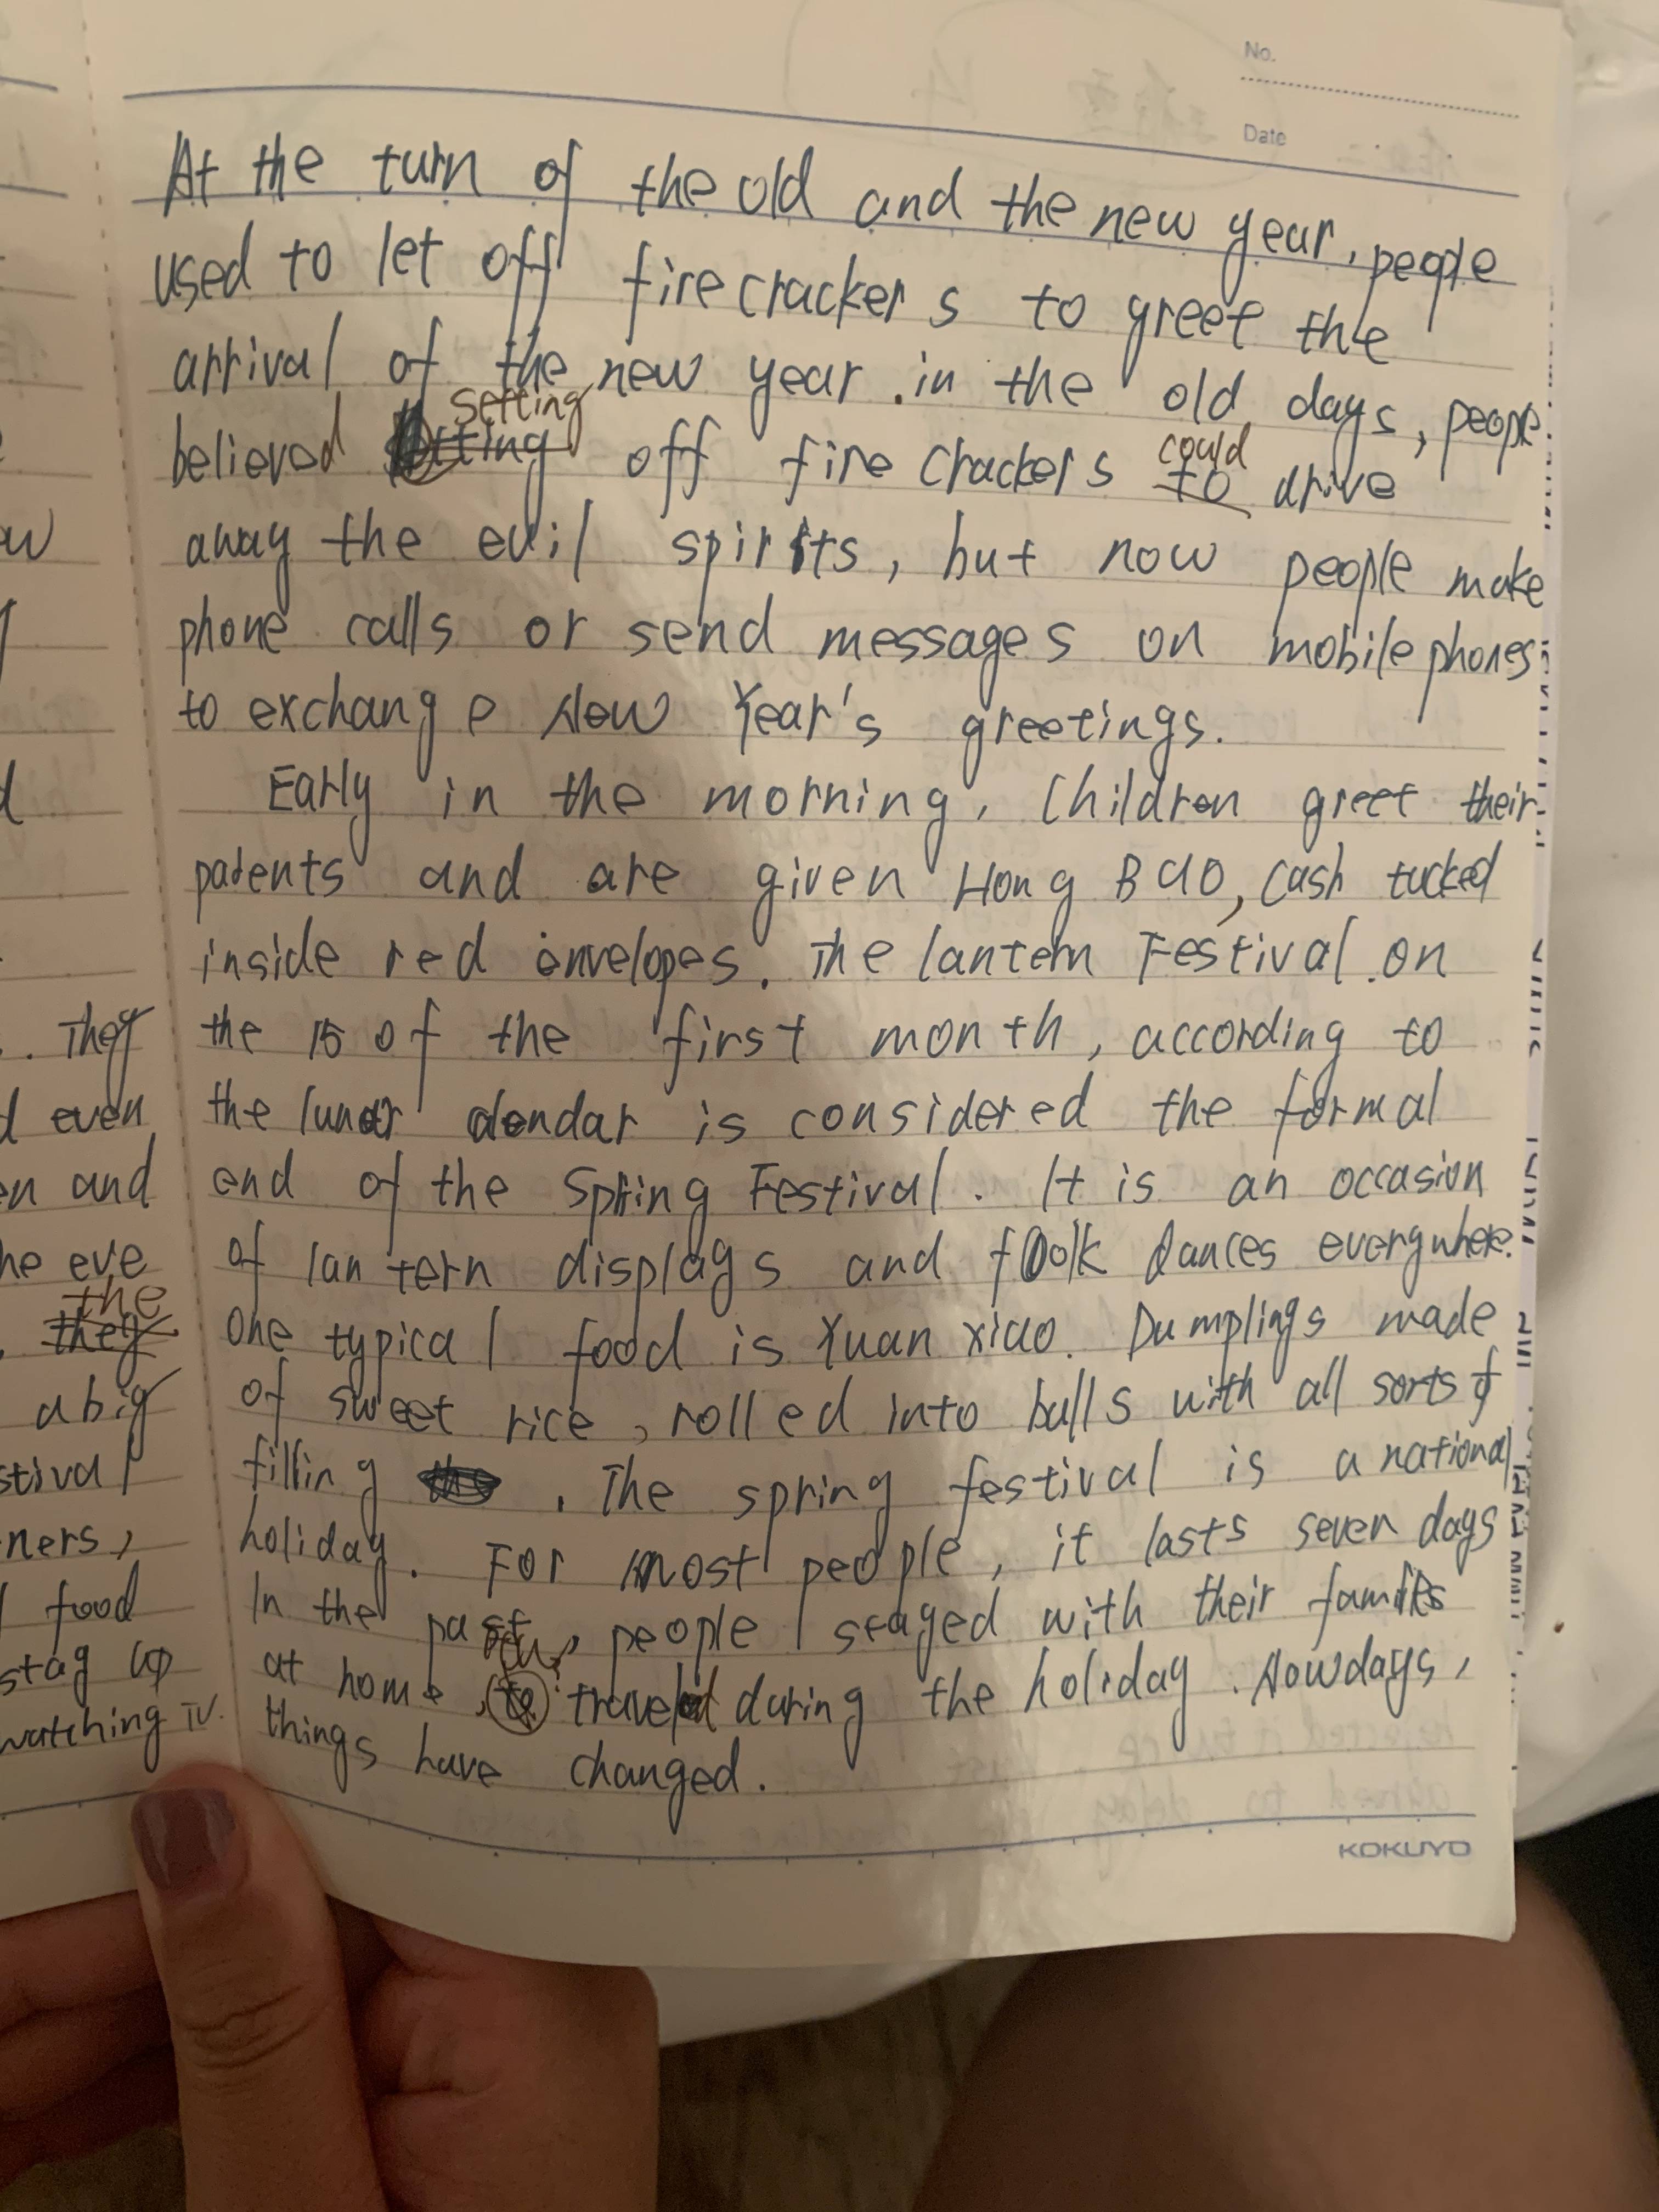 No.
Date
At the turn of the old and the new year, people
used to let off firecrackers to greet the
arrival of the new year. in the old days, people
believed setting off fire crackers could drive
away the evil spirits, but now people make
phone calls or send messages on mobile phones
to exchange New Year's greetings.
Early in the morning, Children greet their
parents and are given Hong Bao, cash tucked
inside red envelopes. The lantern Festival on
the 15 of the first month, according to
the lunar calendar is considered the formal
end of the Spring Festival. It is an occasion
of lantern displays and folk dances everywhere.
One typical food is Yuan xiao. Dumplings made
of sweet rice, rolled into balls with all sorts of
filling. The spring festival is a national
holiday. For most people, it lasts seven days
In the past, people stayed with their families
at home, traveled during the holiday. Nowdays,
things have changed.
KOKUYO
They
even
and
eve
the
they
a big
food
stay up
watching TV.